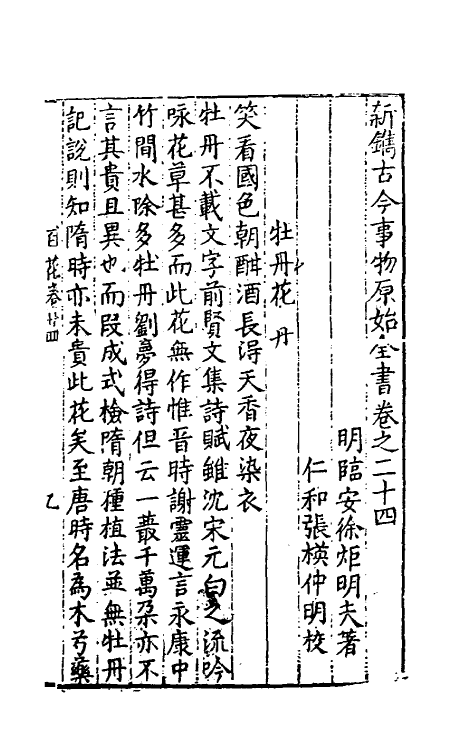 新鐫古今事物原始全書卷之二十四
明臨安徐炬明夫著
仁和張楧仲明校
牡丹花 丹
笑看國色朝酣酒長得天香夜染衣
牡丹不載文字前賢文集詩賦雖沈宋元白之流吟
咏花草甚多而此花無作惟晋時謝靈運言永康中
竹間水際多牡丹劉夢得詩但云一叢千萬朶亦不
言其貴且異也而段成式檢隋朝種植法並無牡丹
記說則知隋時亦未貴此花矣至唐時名為木芍藥
百花卷廿四 乙